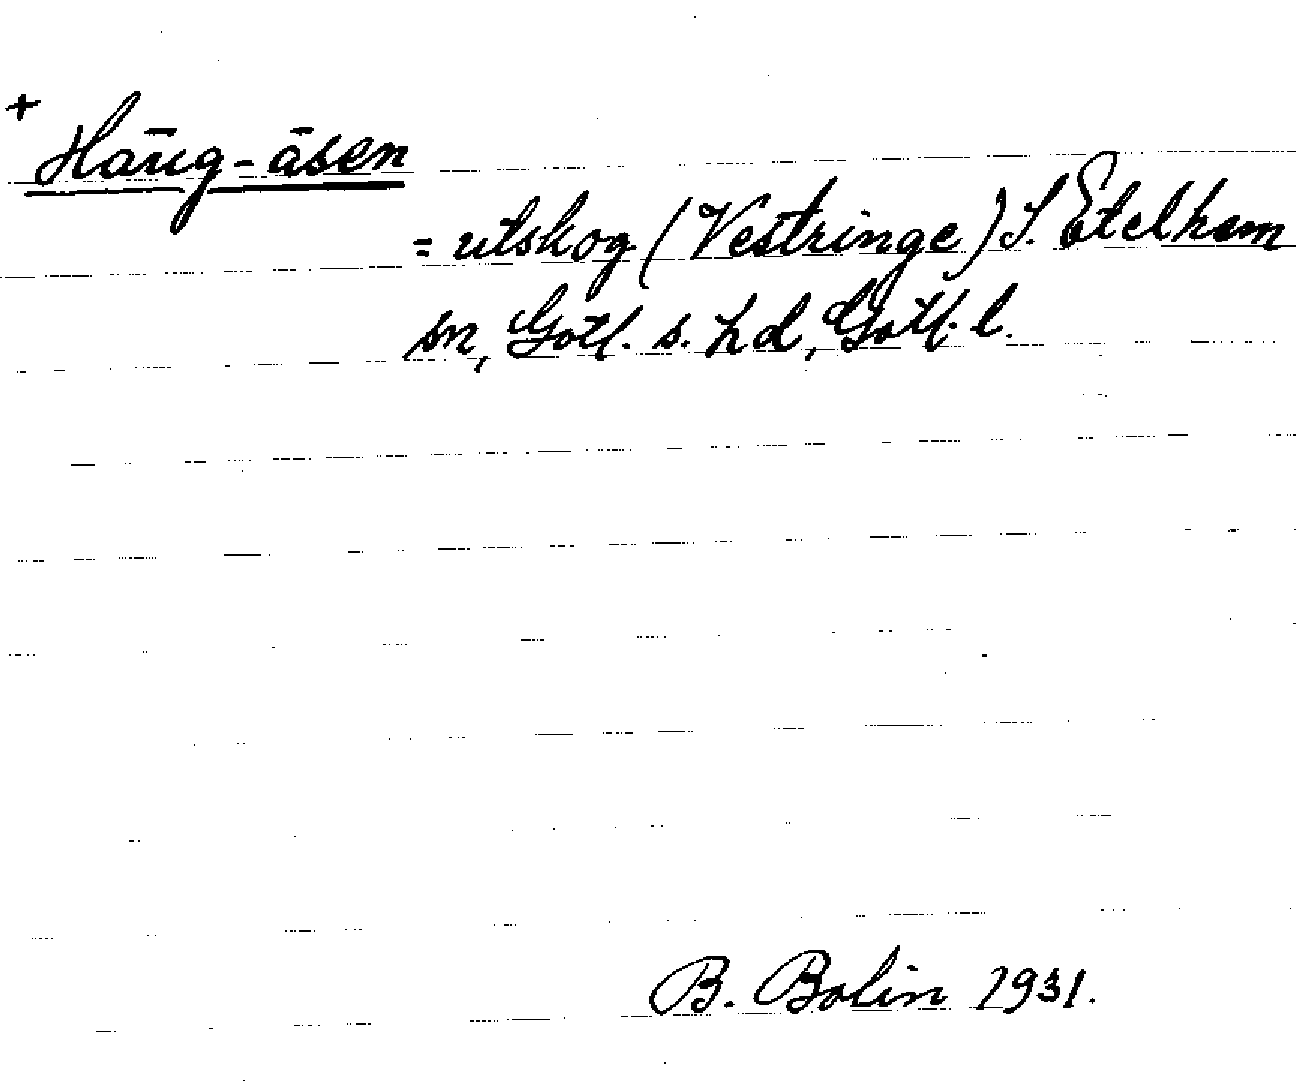 +
Haūg-āsen
= utskog (Vestringe) S. Etelhem
sn, Gotl. s. hd, Gotl. l.
B. Bolin 1931.